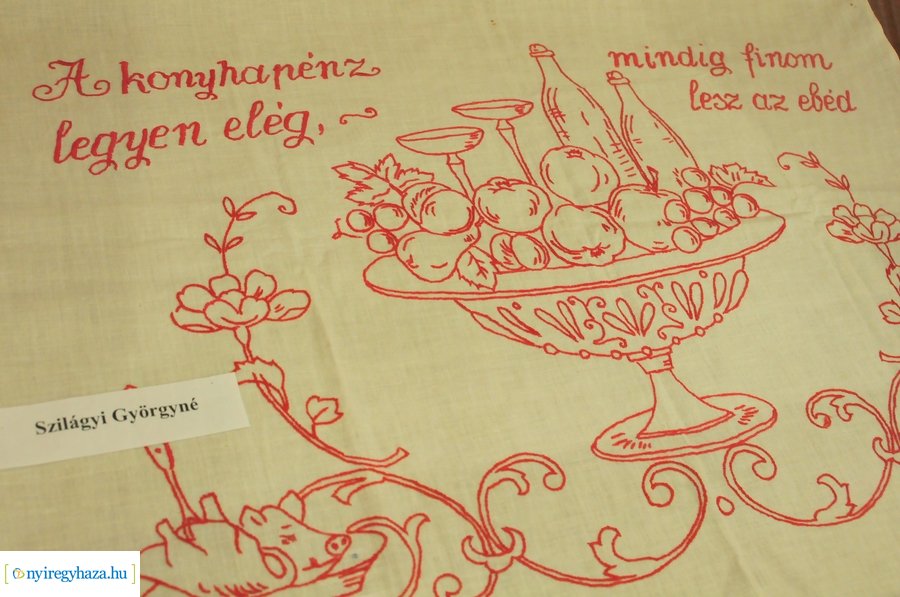 A konyhapénz
legyen elég,
mindig finom
lesz az ebéd
Szilágyi Györgyné
[nyiregyhaza.hu]